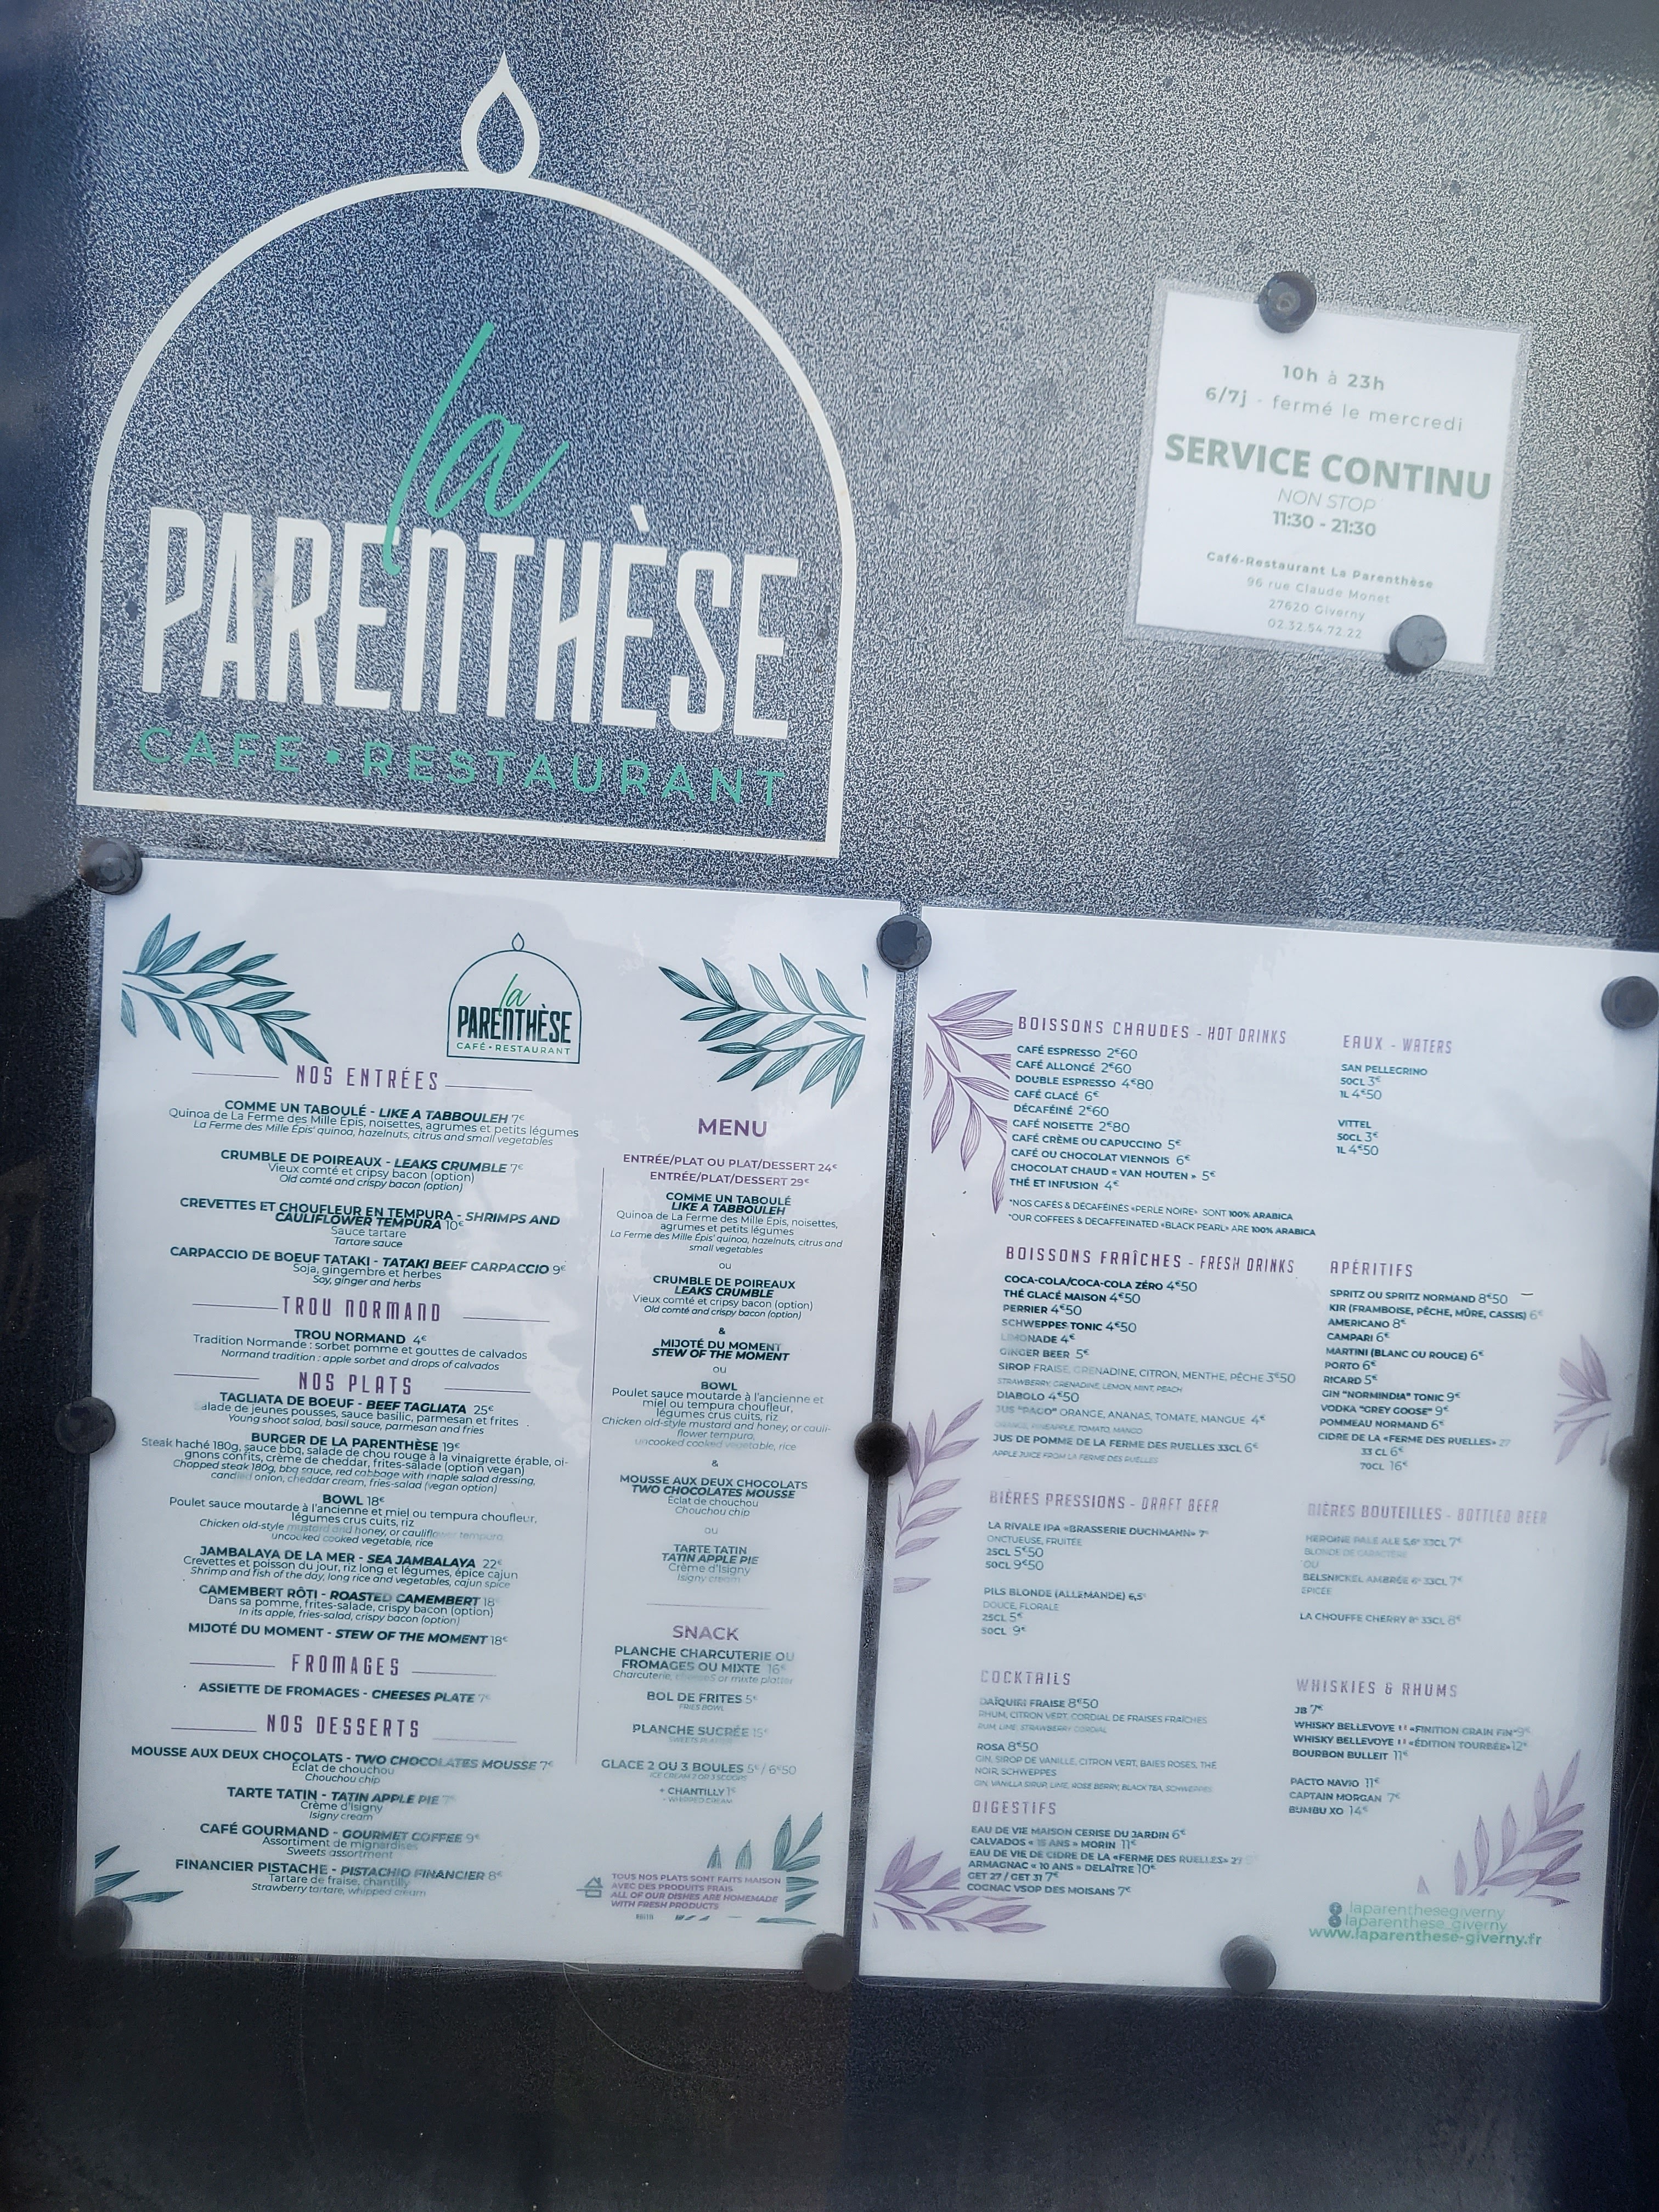 la
PARENTHÈSE
CAFE • RESTAURANT
10h à 23h
6/7j - fermé le mercredi
SERVICE CONTINU
NON STOP
11:30 - 21:30
Café-Restaurant La Parenthèse
96 rue Claude Monet
27620 Giverny
02.32.54.72.22
la
PARENTHÈSE
CAFÉ • RESTAURANT
NOS ENTRÉES
COMME UN TABOULÉ - LIKE A TABBOULEH 7€
Quinoa de La Ferme des Mille Épis, noisettes, agrumes et petits légumes
La Ferme des Mille Épis' quinoa, hazelnuts, citrus and small vegetables
CRUMBLE DE POIREAUX - LEAKS CRUMBLE 7€
Vieux comté et cripsy bacon (option)
Old comté and crispy bacon (option)
CREVETTES ET CHOUFLEUR EN TEMPURA - SHRIMPS AND
CAULIFLOWER TEMPURA 10€
Sauce tartare
Tartare sauce
CARPACCIO DE BOEUF TATAKI - TATAKI BEEF CARPACCIO 9€
Soja, gingembre et herbes
Soy, ginger and herbs
TROU NORMAND
TROU NORMAND 4€
Tradition Normande : sorbet pomme et gouttes de calvados
Normand tradition : apple sorbet and drops of calvados
NOS PLATS
TAGLIATA DE BOEUF - BEEF TAGLIATA 25€
salade de jeunes pousses, sauce basilic, parmesan et frites
Young shoot salad, basil sauce, parmesan and fries
BURGER DE LA PARENTHÈSE 19€
Steak haché 180g, sauce bbq, salade de chou rouge à la vinaigrette érable, oi-
gnons confits, crème de cheddar, frites-salade (option vegan)
Chopped steak 180g, bbq sauce, red cabbage with maple salad dressing,
candied onion, cheddar cream, fries-salad (vegan option)
BOWL 18€
Poulet sauce moutarde à l'ancienne et miel ou tempura choufleur,
légumes crus cuits, riz
Chicken old-style mustard and honey, or cauliflower tempura,
uncooked cooked vegetable, rice
JAMBALAYA DE LA MER - SEA JAMBALAYA 22€
Crevettes et poisson du jour, riz long et légumes, épice cajun
Shrimp and fish of the day, long rice and vegetables, cajun spice
CAMEMBERT RÔTI - ROASTED CAMEMBERT 18€
Dans sa pomme, frites-salade, crispy bacon (option)
In its apple, fries-salad, crispy bacon (option)
MIJOTÉ DU MOMENT - STEW OF THE MOMENT 18€
FROMAGES
ASSIETTE DE FROMAGES - CHEESES PLATE 7€
NOS DESSERTS
MOUSSE AUX DEUX CHOCOLATS - TWO CHOCOLATES MOUSSE 7€
Éclat de chouchou
Chouchou chip
TARTE TATIN - TATIN APPLE PIE 7€
Crème d'Isigny
Isigny cream
CAFÉ GOURMAND - GOURMET COFFEE 9€
Assortiment de mignardises
Sweets assortment
FINANCIER PISTACHE - PISTACHIO FINANCIER 8€
Tartare de fraise, chantilly
Strawberry tartare, whipped cream
MENU
ENTRÉE/PLAT OU PLAT/DESSERT 24€
ENTRÉE/PLAT/DESSERT 29€
COMME UN TABOULÉ
LIKE A TABBOULEH
Quinoa de La Ferme des Mille Épis, noisettes,
agrumes et petits légumes
La Ferme des Mille Épis' quinoa, hazelnuts, citrus and
small vegetables
ou
CRUMBLE DE POIREAUX
LEAKS CRUMBLE
Vieux comté et cripsy bacon (option)
Old comté and crispy bacon (option)
&
MIJOTÉ DU MOMENT
STEW OF THE MOMENT
ou
BOWL
Poulet sauce moutarde à l'ancienne et
miel ou tempura choufleur,
légumes crus cuits, riz
Chicken old-style mustard and honey, or cauli-
flower tempura,
uncooked cooked vegetable, rice
&
MOUSSE AUX DEUX CHOCOLATS
TWO CHOCOLATES MOUSSE
Éclat de chouchou
Chouchou chip
ou
TARTE TATIN
TATIN APPLE PIE
Crème d'Isigny
Isigny cream
SNACK
PLANCHE CHARCUTERIE OU
FROMAGES OU MIXTE 16€
Charcuterie, cheeses or mixte platter
BOL DE FRITES 5€
FRIES BOWL
PLANCHE SUCRÉE 15€
SWEETS PLATTER
GLACE 2 OU 3 BOULES 5€ / 6€50
ICE CREAM 2 OR 3 SCOOPS
+ CHANTILLY 1€
+ WHIPPED CREAM
TOUS NOS PLATS SONT FAITS MAISON
AVEC DES PRODUITS FRAIS
ALL OF OUR DISHES ARE HOMEMADE
WITH FRESH PRODUCTS
BOISSONS CHAUDES - HOT DRINKS
CAFÉ ESPRESSO 2€60
CAFÉ ALLONGÉ 2€60
DOUBLE ESPRESSO 4€80
CAFÉ GLACÉ 6€
DÉCAFÉINÉ 2€60
CAFÉ NOISETTE 2€80
CAFÉ CRÈME OU CAPUCCINO 5€
CAFÉ OU CHOCOLAT VIENNOIS 6€
CHOCOLAT CHAUD « VAN HOUTEN » 5€
THÉ ET INFUSION 4€
*NOS CAFÉS & DÉCAFÉINÉS «PERLE NOIRE» SONT 100% ARABICA
*OUR COFFEES & DECAFFEINATED «BLACK PEARL» ARE 100% ARABICA
EAUX - WATERS
SAN PELLEGRINO
50CL 3€
1L 4€50
VITTEL
50CL 3€
1L 4€50
BOISSONS FRAÎCHES - FRESH DRINKS
COCA-COLA/COCA-COLA ZÉRO 4€50
THÉ GLACÉ MAISON 4€50
PERRIER 4€50
SCHWEPPES TONIC 4€50
LIMONADE 4€
GINGER BEER 5€
SIROP FRAISE, GRENADINE, CITRON, MENTHE, PÊCHE 3€50
STRAWBERRY, GRENADINE, LEMON, MINT, PEACH
DIABOLO 4€50
JUS "PAGO" ORANGE, ANANAS, TOMATE, MANGUE 4€
ORANGE, PINEAPPLE, TOMATO, MANGO
JUS DE POMME DE LA FERME DES RUELLES 33CL 6€
APPLE JUICE FROM LA FERME DES RUELLES
APÉRITIFS
SPRITZ OU SPRITZ NORMAND 8€50
KIR (FRAMBOISE, PÊCHE, MÛRE, CASSIS) 6€
AMERICANO 8€
CAMPARI 6€
MARTINI (BLANC OU ROUGE) 6€
PORTO 6€
RICARD 5€
GIN "NORMINDIA" TONIC 9€
VODKA "GREY GOOSE" 9€
POMMEAU NORMAND 6€
CIDRE DE LA «FERME DES RUELLES» 27
33 CL 6€
70CL 16€
BIÈRES PRESSIONS - DRAFT BEER
LA RIVALE IPA «BRASSERIE DUCHMANN» 7°
ONCTUEUSE, FRUITÉE
25CL 5€50
50CL 9€50
PILS BLONDE (ALLEMANDE) 6,5°
DOUCE, FLORALE
25CL 5€
50CL 9€
BIÈRES BOUTEILLES - BOTTLED BEER
HEROINE PALE ALE 5,6° 33CL 7€
BLONDE DE CARACTÈRE
OU
BELSNICKEL AMBRÉE 6° 33CL 7€
ÉPICÉE
LA CHOUFFE CHERRY 8° 33CL 8€
COCKTAILS
DAÏQUIRI FRAISE 8€50
RHUM, CITRON VERT, CORDIAL DE FRAISES FRAÎCHES
RUM, LIME, STRAWBERRY CORDIAL
ROSA 8€50
GIN, SIROP DE VANILLE, CITRON VERT, BAIES ROSES, THÉ
NOIR, SCHWEPPES
GIN, VANILLA SIRUP, LIME, ROSE BERRY, BLACK TEA, SCHWEPPES
WHISKIES & RHUMS
JB 7€
WHISKY BELLEVOYE «FINITION GRAIN FIN» 9€
WHISKY BELLEVOYE «ÉDITION TOURBÉE» 12€
BOURBON BULLEIT 11€
PACTO NAVIO 11€
CAPTAIN MORGAN 7€
BUMBU XO 14€
DIGESTIFS
EAU DE VIE MAISON CERISE DU JARDIN 6€
CALVADOS « 15 ANS » MORIN 11€
EAU DE VIE DE CIDRE DE LA «FERME DES RUELLES» 27
ARMAGNAC « 10 ANS » DELAÎTRE 10€
GET 27 / GET 31 7€
COGNAC VSOP DES MOISANS 7€
laparenthesegiverny
laparenthese_giverny
www.laparenthese-giverny.fr